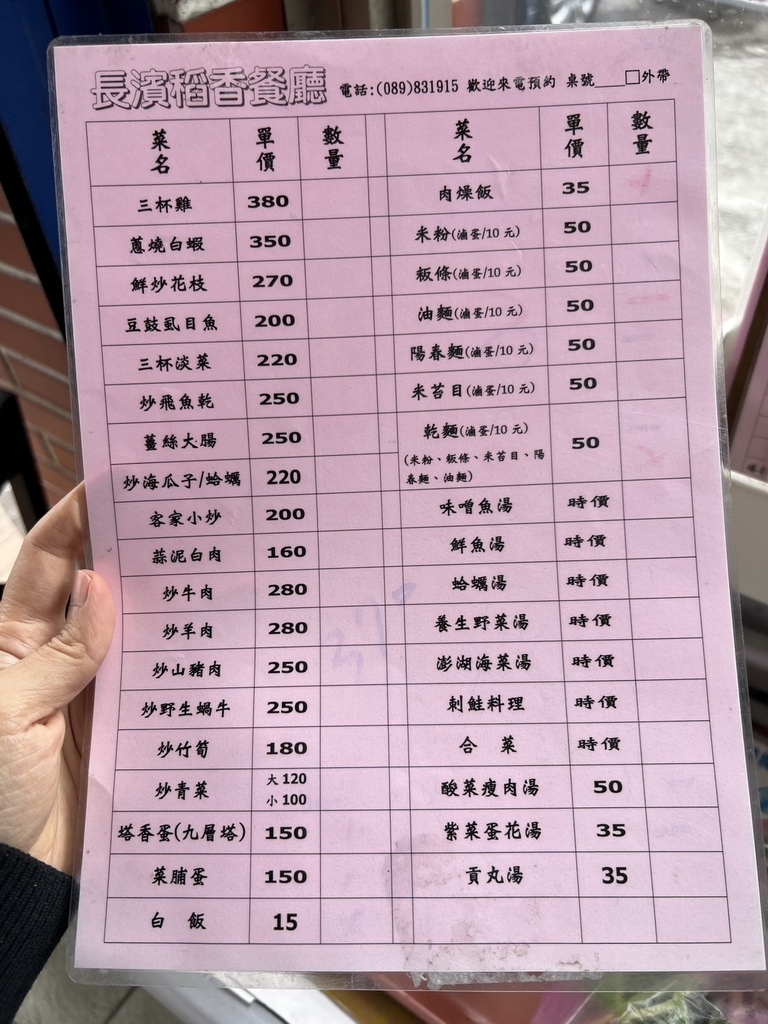 長濱稻香餐廳 電話:(089)831915 歡迎來電預約 桌號____□外帶
菜名 單價 數量
三杯雞 380
蔥燒白蝦 350
鮮炒花枝 270
豆鼓虱目魚 200
三杯淡菜 220
炒飛魚乾 250
薑絲大腸 250
炒海瓜子/蛤蠣 220
客家小炒 200
蒜泥白肉 160
炒牛肉 280
炒羊肉 280
炒山豬肉 250
炒野生蝸牛 250
炒竹筍 180
炒青菜 大120
小100
塔香蛋(九層塔) 150
菜脯蛋 150
白飯 15
菜名 單價 數量
肉燥飯 35
米粉(滷蛋/10 元) 50
粄條(滷蛋/10 元) 50
油麵(滷蛋/10 元) 50
陽春麵(滷蛋/10 元) 50
米苔目(滷蛋/10 元) 50
乾麵(滷蛋/10 元) 50
(米粉、粄條、米苔目、陽
春麵、油麵)
味噌魚湯 時價
鮮魚湯 時價
蛤蠣湯 時價
養生野菜湯 時價
澎湖海菜湯 時價
刺鮭料理 時價
合菜 時價
酸菜瘦肉湯 50
紫菜蛋花湯 35
貢丸湯 35